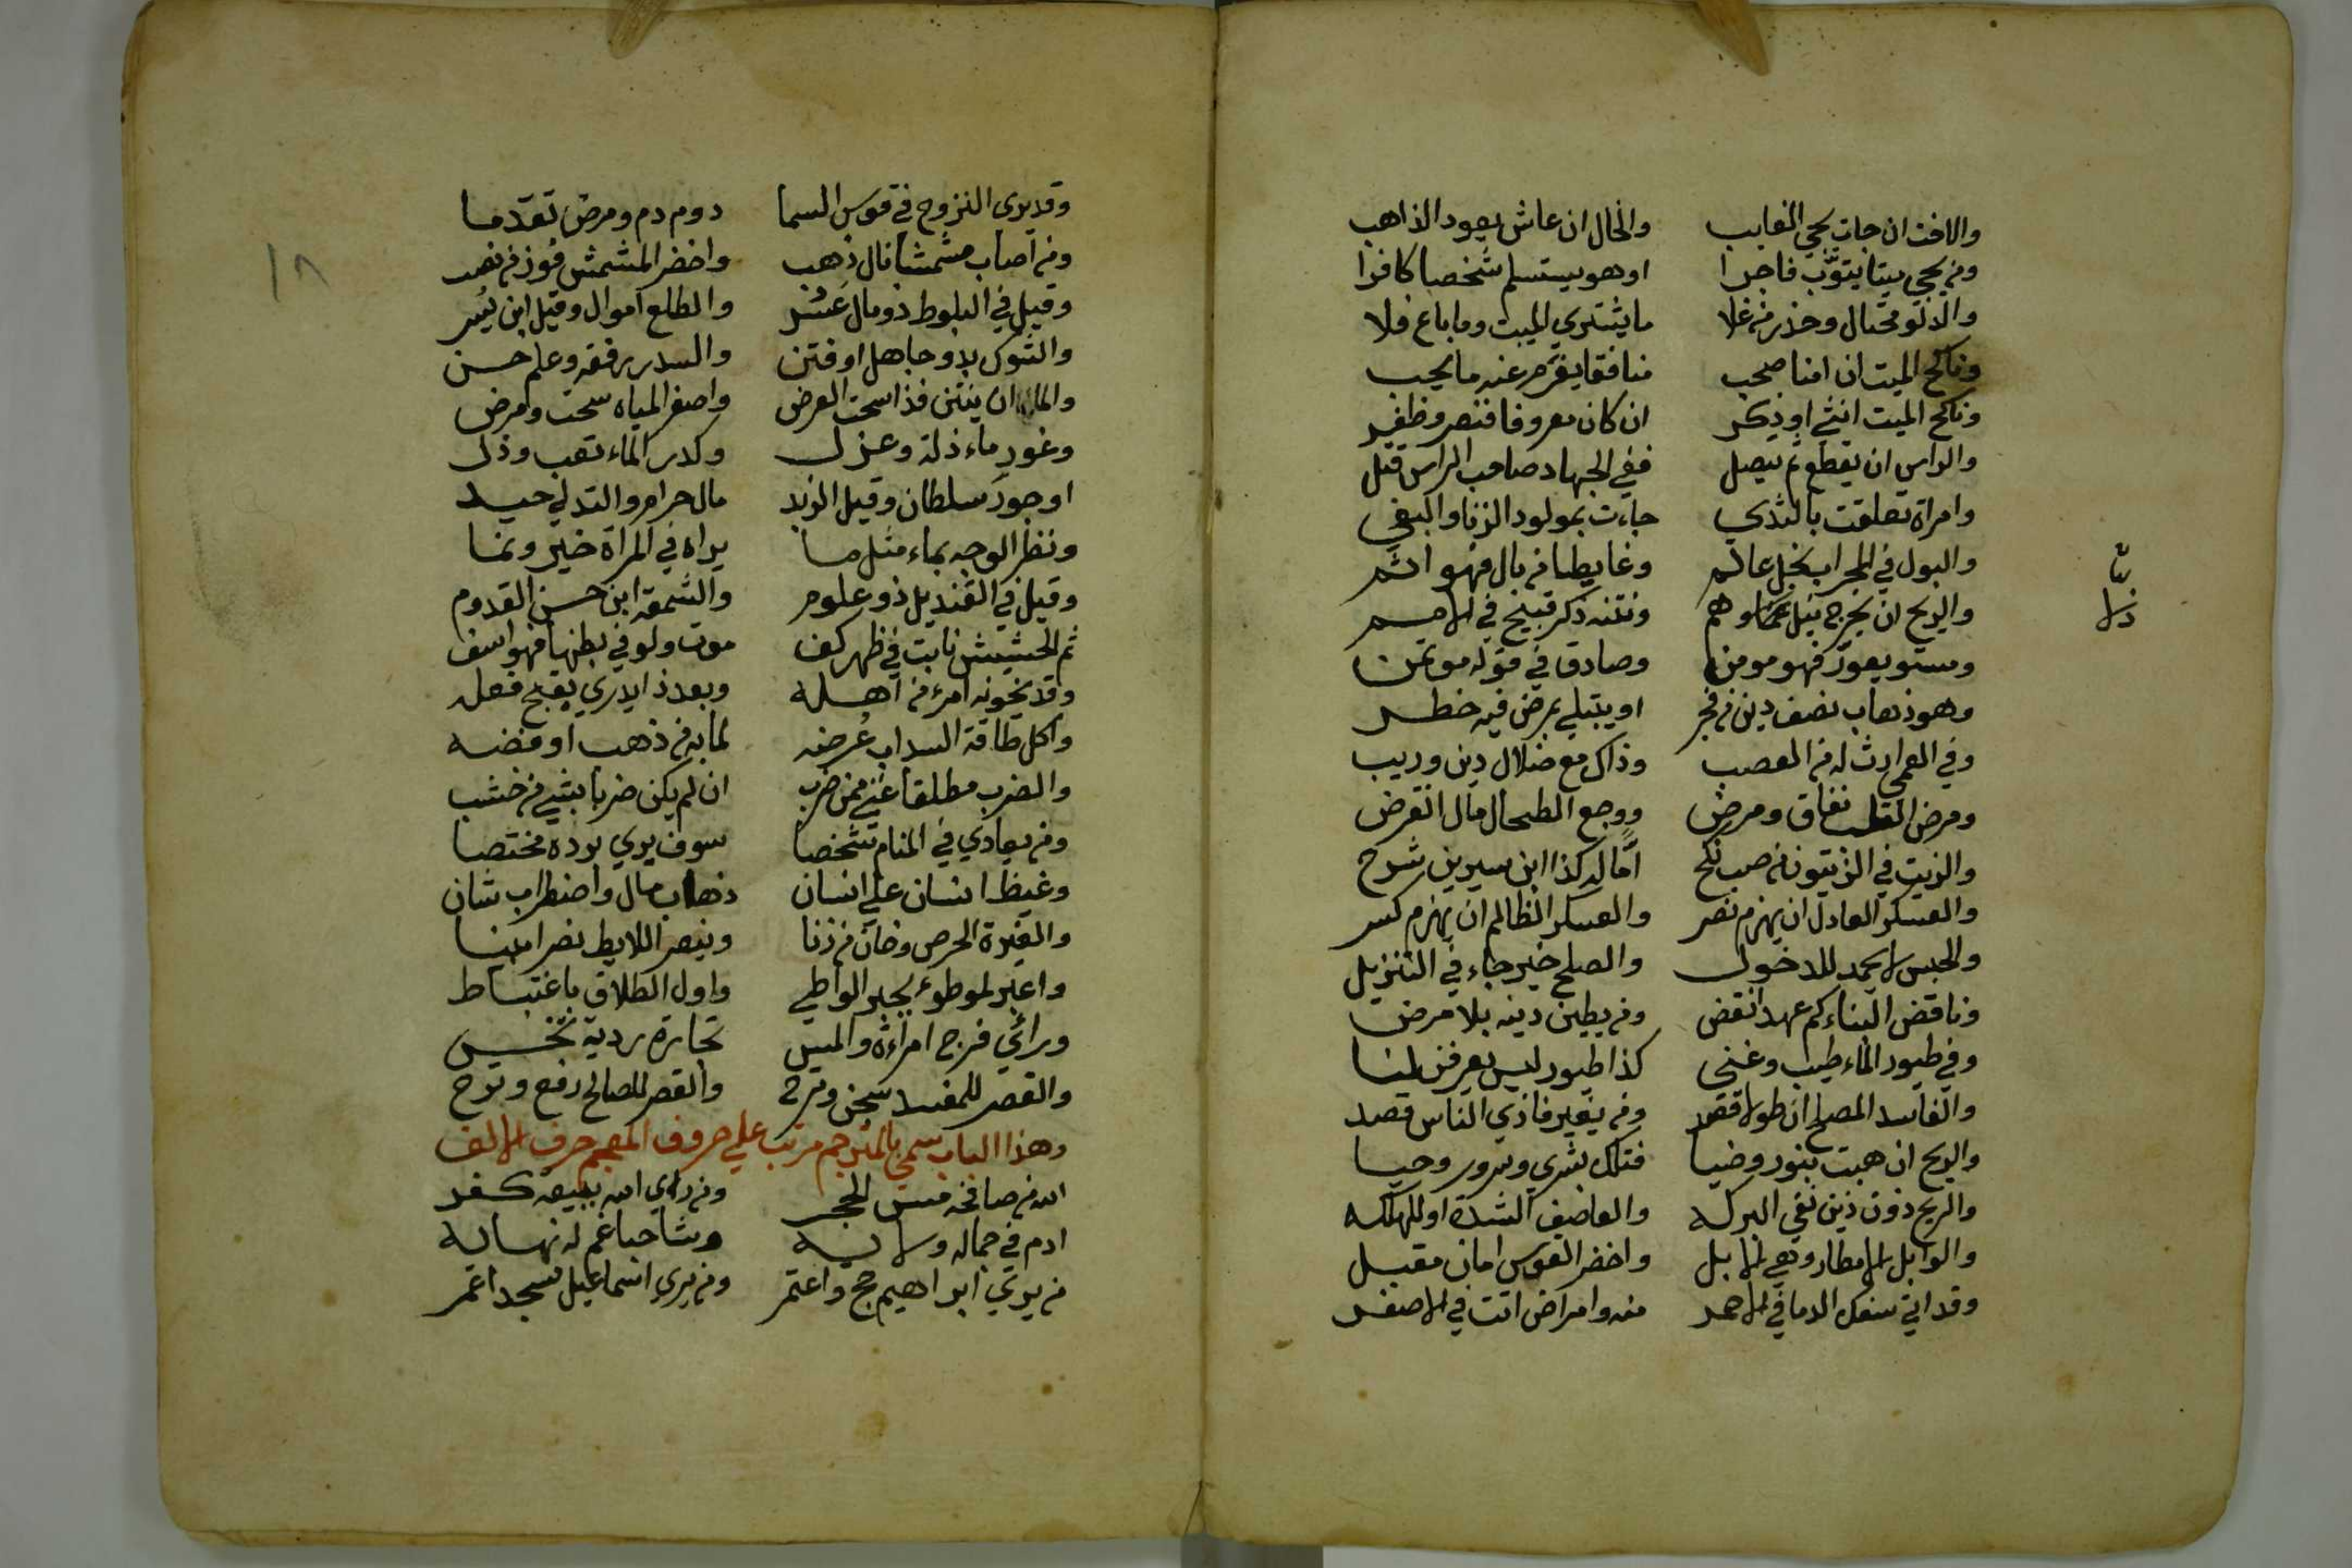 والاخت ان جات يجي الغايب والخال ان عاش يعود الذاهب
ومن يحيي ميتا يتوب فاجرا او هو يستسلم شخصا كافرا
والدلو محتال وحذر من غلا ما يشتري الميت وما باع فلا
وناكح الميت ان امنا صحب منافقا يغرم عنه ما يجب
وناكح الميت انثى او ذكر ان كان معروفا فنصر وظفر
والراس ان يقطع ثم يصل ففي الجهاد صاحب الراس قتل
وامراة تعلقت بالثدي جاءت بمولود الزنا والبغي
والبول في المحراب نجل عالم وغايطا من بال فهو اثم
والريح ان يخرج يزيل غما وهم ونتنه ذكر قبيح في الامم
ومستو يعود فهو مومن وصادق في قوله موتمن
وهو ذهاب نصف دين من فجر او يبتلي بمرض فيه خطر
وفي العمى ارث له من العصب وذاك مع ضلال دين وريب
ومرض القلب نفاق ومرض ووجع الطحال مال انقرض
والزيت في الزيتون من صب نكح اما له كذا ابن سيرين شرح
والعسكر العادل ان يهزم نصر والعسكر الظالم ان يهزم كسر
والحبس لا يحمد للدخول والصلح خير جاء في التنزيل
وناقض البناء كم عهدا نقض ومن يطين دينه بلا مرض
وفي طيور الماء طيب وغنى كذا طيور ليس يعرفن لنا
والفاسد المصلح ان طولا قصد ومن يغير فاذي الناس قصد
والريح ان هبت بنور وضيا فتلك بشرى وسرور وحيا
والريح دون ذين نفي البركه والعاصف الشدة او للهلكه
والوابل الامطار وهي الوابل واخضر القوس امان مقبل
وقد اتى سفك الدما في الاحمر منه وامراض اتت في الاصفر
وقد يرى التزوج في قوس السما دوم دم ومرض تقدما
ومن اصاب مشمشا نال ذهب واخضر المشمش فوز من نصب
وقيل في البلوط ذو مال عسر والطلع اموال وقيل ابن يسر
والشوك بدو جاهل او فتن والسدر رفقه وعلم حسن
والماء ان ينتن فذا سحت العرض واصفر المياه سحت ومرض
وغور ماء ذلة وعزل وكدر الماء تعب وذل
او جور سلطان وقيل الزبد مال حرام والتدلي حيد
ونظر الوجه بماء مثل ما يراه في المراة خير ونما
وقيل في القنديل ذو علوم والشمعة ابن حسن القدوم
ثم الحشيش نابت في ظهر كف موت ولو في بطنها فهو اسف
وقد يخونه امرء من اهله وبعد ذا يدري بقبح فعله
واكل طاقة السداب عرضه لما به من ذهب او فضه
والضرب مطلقا غنى ممن ضرب ان لم يكن ضربا بشيء من خشب
ومن يعادي في المنام شخصا سوف يرى بوده مختصا
وغيظ انسان على انسان ذهاب مال واضطراب شان
والغيرة الحرص وخان من زنا وينصر اللايط نصرا بينا
واعبر لموطوء بخير الواطي واول الطلاق باغتباط
ورائي فرج امراءة والميس تجارة ردية بخس
والقصر للمفسد سجن وترح والقصر للصالح رفع وفرح
وهذا الباب سمي بالمترجم مرتب على حروف المعجم حرف الالف
الله من صافحه مس الحجر ومن راى الله ببيعة كفر
ادم في جماله ولايه وشاحبا غم له نهايه
من يرى ابراهيم حج واعتمر ومن يرى اسماعيل مسجدا عمر
١٨